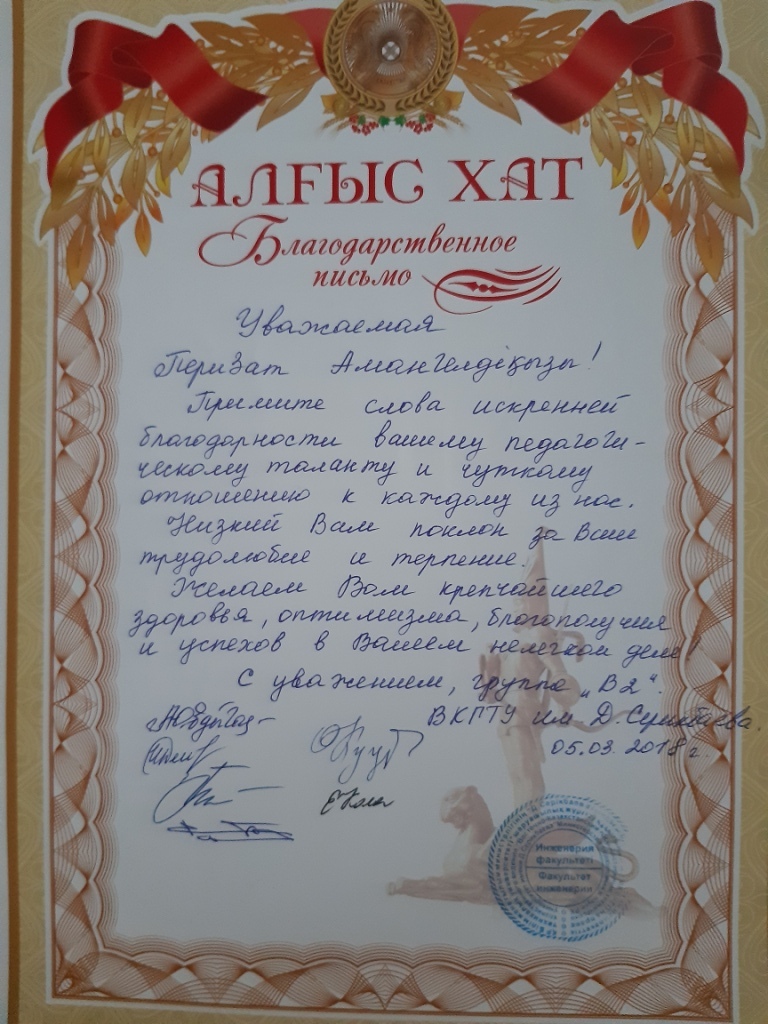 АЛҒЫС ХАТ
Благодарственное
письмо
Уважаемая
Перизат Амангелдіқызы!
Примите слова искренней
благодарности вашему педагоги-
ческому таланту и чуткому
отношению к каждому из нас.
Низкий Вам поклон за Ваше
трудолюбие и терпение.
Желаем Вам крепчайшего
здоровья, оптимизма, благополучия
и успехов в Вашем нелегком деле!
С уважением, группа „В2“.
ВКГТУ им Д. Серикбаева.
05.03. 2018 г.
Инженерия
факультеті
Факультет
инженерии